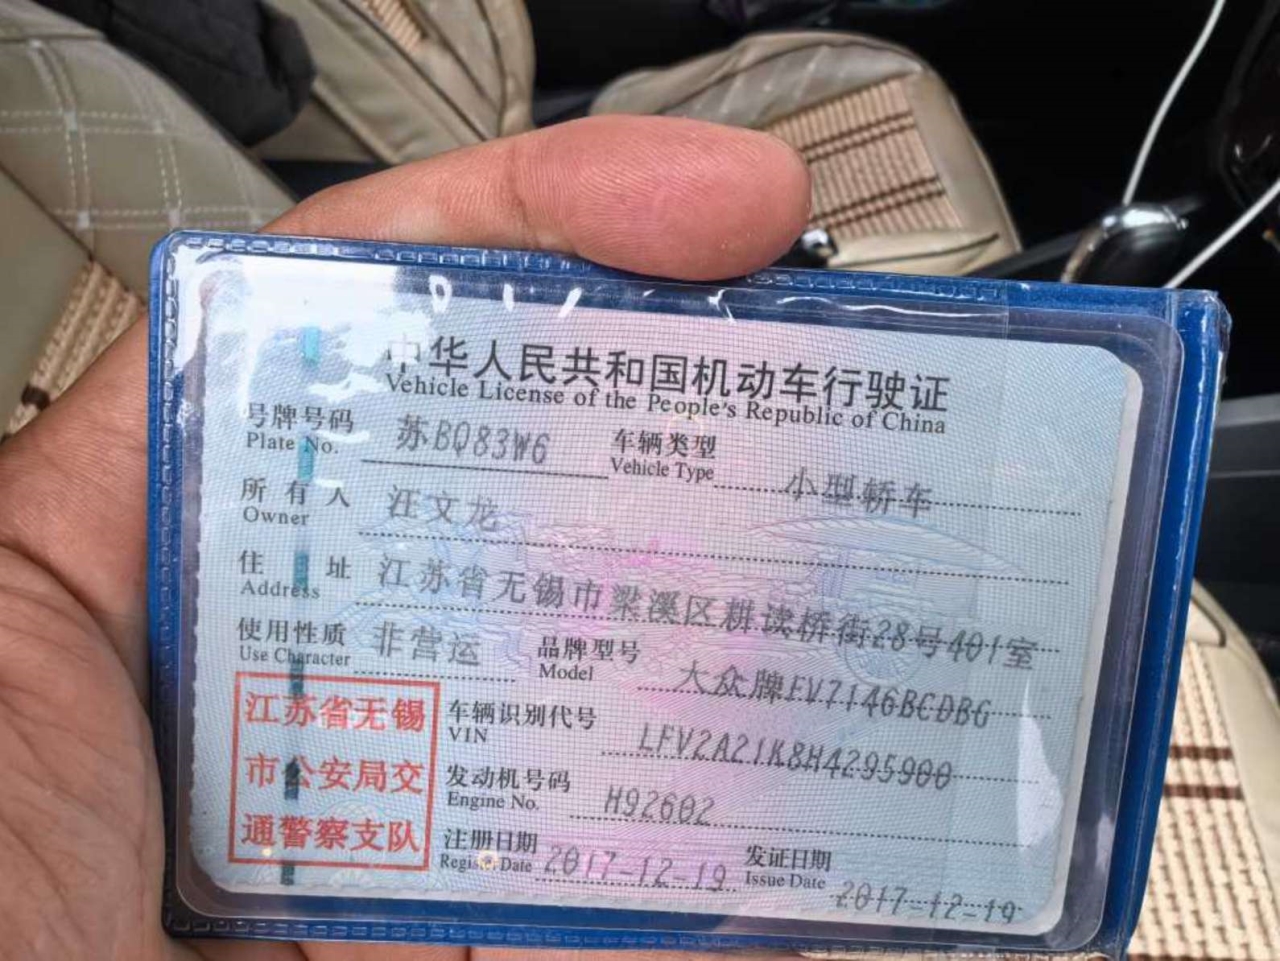 中华人民共和国机动车行驶证
Vehicle License of the People's Republic of China
号牌号码 苏BQ83W6 车辆类型 小型轿车
Plate No. Vehicle Type
所有人 汪文龙
Owner
住址 江苏省无锡市梁溪区耕读桥街28号401室
Address
使用性质 非营运 品牌型号 大众牌FV7146BCDBG
Use Character Model
江苏省无锡 车辆识别代号 LFV2A21K8H4295900
VIN
市公安局交 发动机号码 H92602
Engine No.
通警察支队 注册日期 2017-12-19 发证日期 2017-12-19
Register Date Issue Date